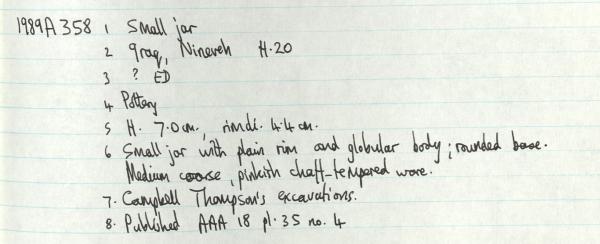 1989A358 1 Small jar
2 Iraq, Nineveh H.20
3 ? ED
4 Pottery
5 H. 7.0cm., rimdi. 4.4cm.
6 Small jar with plain rim and globular body; rounded base.
Medium coarse, pinkish chaff-tempered ware.
7. Campbell Thompson's excavations.
8. Published AAA 18 pl. 35 no. 4